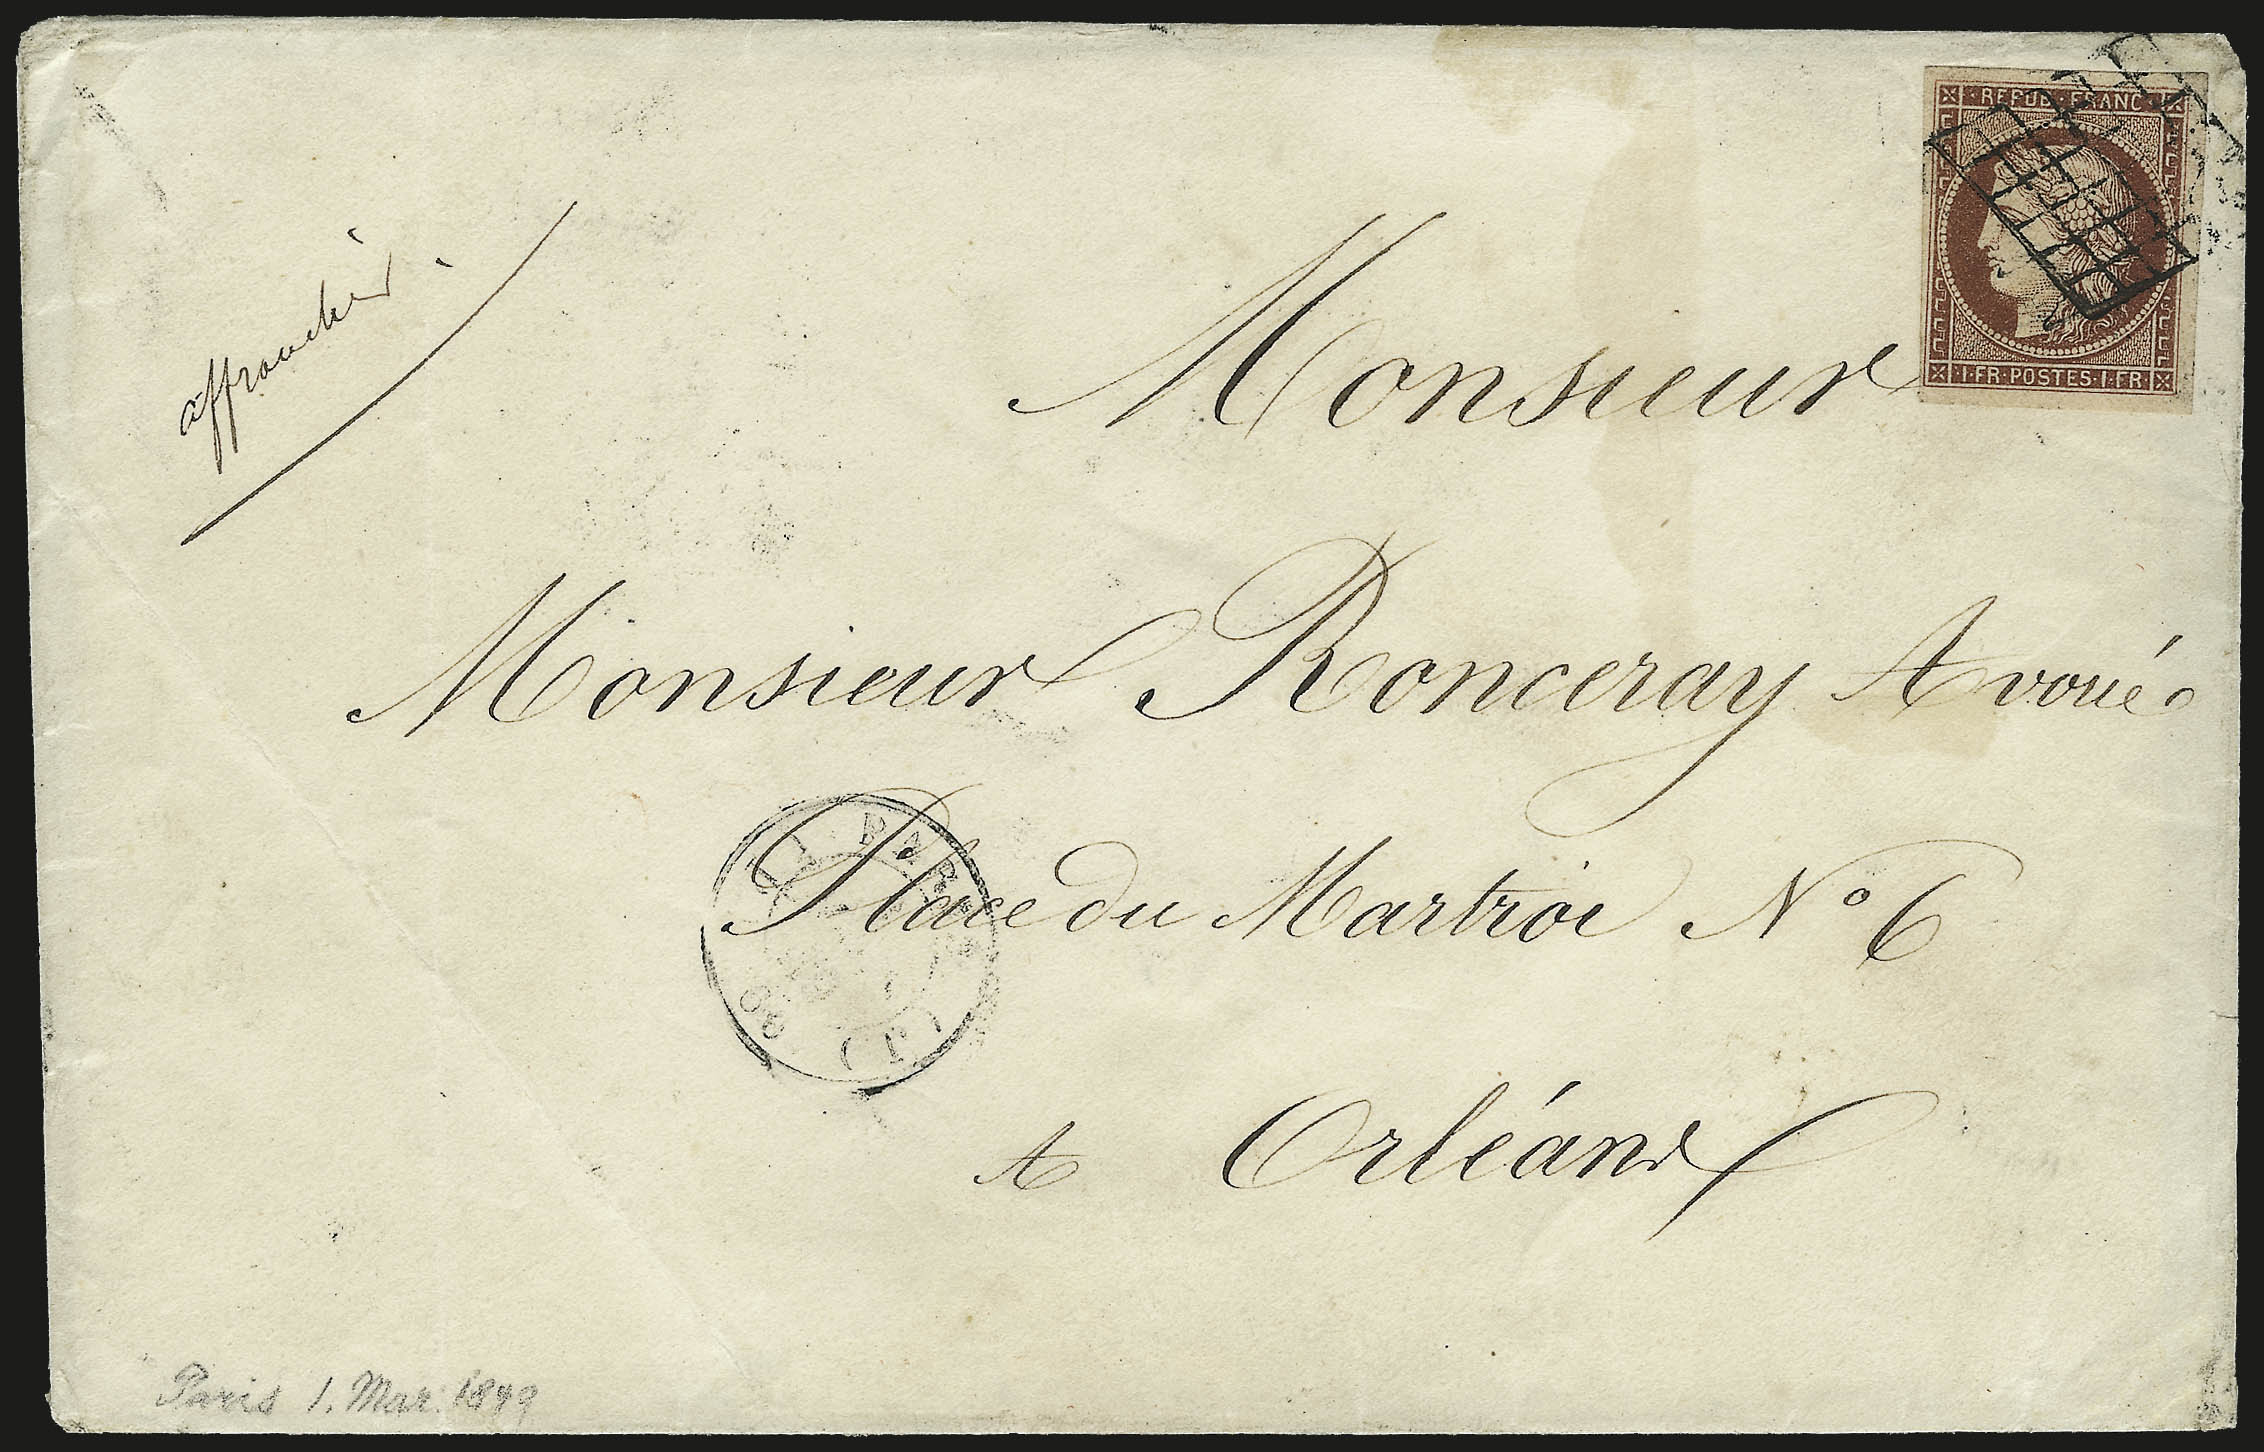 REPUB·FRANC
1·FR·POSTES·1·FR
affranchir
Monsieur
Monsieur Ronceray Avoué
Place du Martroi N° 6
A Orléans
PAR
(1)
Paris 1. Mar. 1849